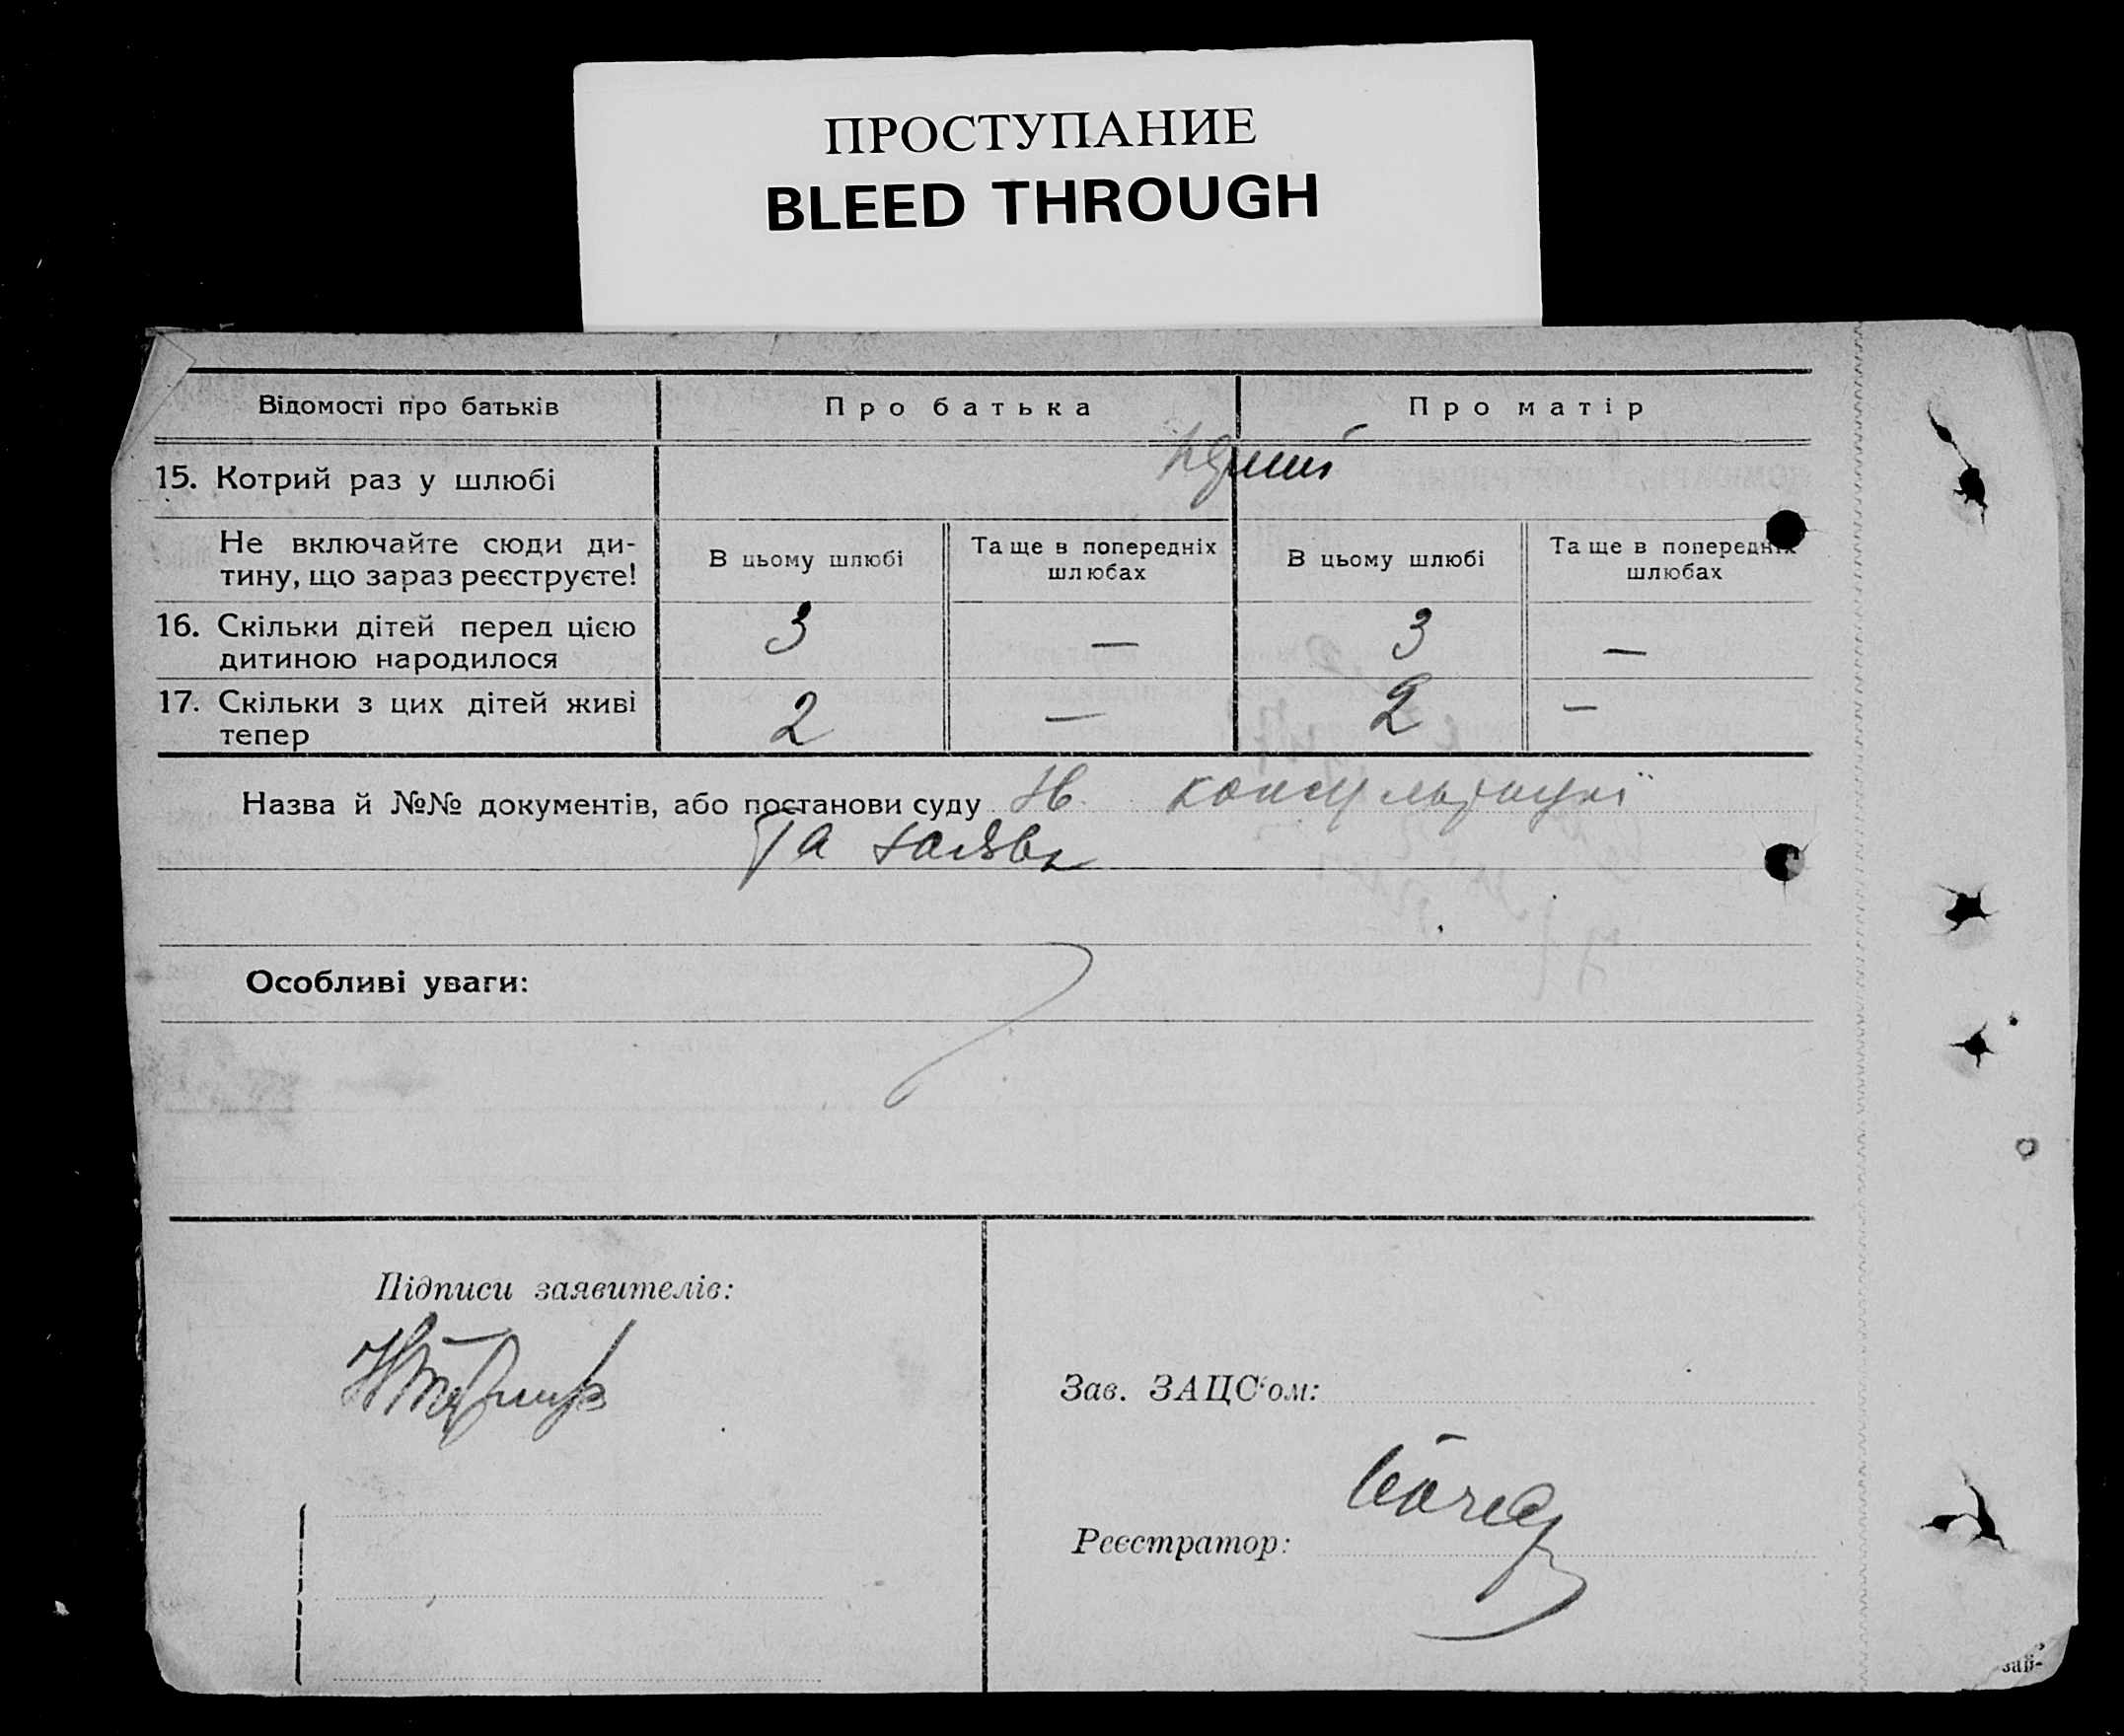 ПРОСТУПАНИЕ
BLEED THROUGH
Відомості про батьків
Про батька
Про матір
15. Котрий раз у шлюбі
Не включайте сюди ди-
тину, що зараз реєструєте!
В цьому шлюбі
Та ще в попередніх
шлюбах
В цьому шлюбі
Та ще в попередніх
шлюбах
16. Скільки дітей перед цією
дитиною народилося
3 — 3 —
17. Скільки з цих дітей живі
тепер
2 — 2 —
Назва й №№ документів, або постанови суду консультації
та заяви
Особливі уваги:
Підписи заявителів:
Зав. ЗАЦС'ом:
Реєстратор:
зай-